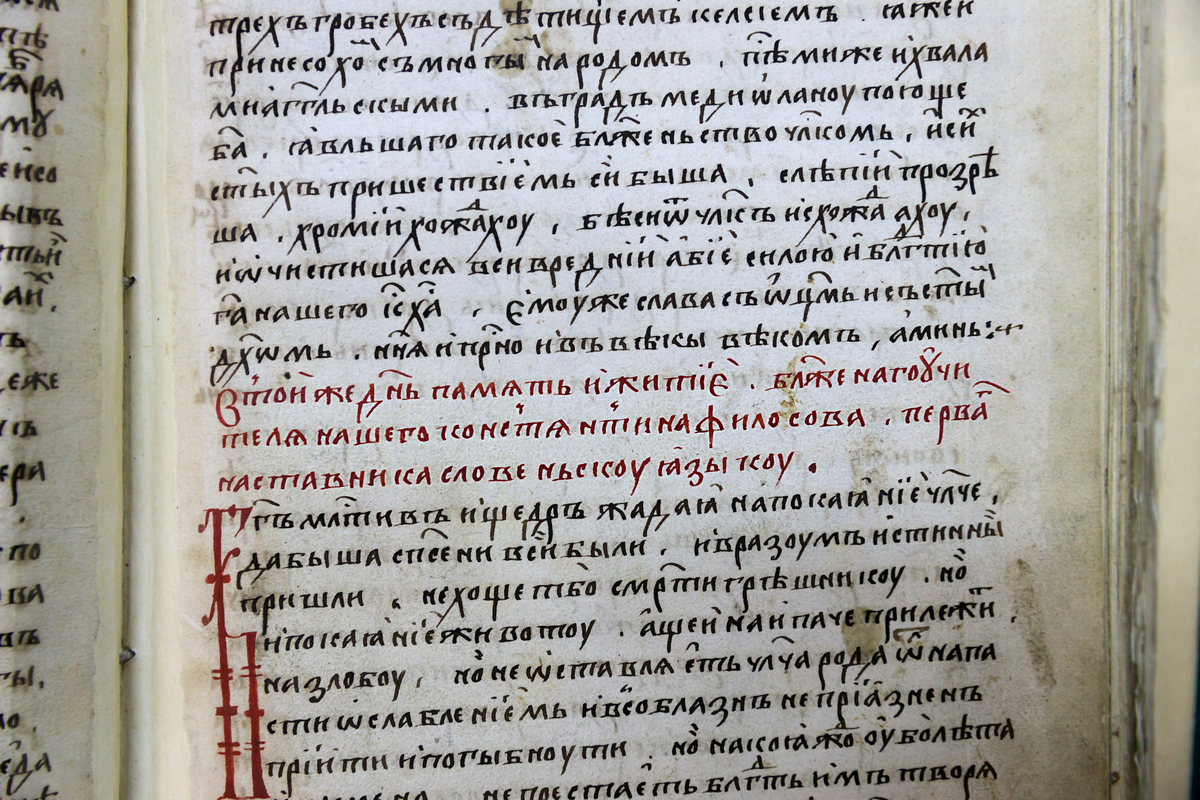 трехъ гробехъ съ дѣтищемъ келсіемъ . ꙗже и
принесохо съ многы народомъ . пѣми же и хвала
ми агг҃льскыми . въ градъ медиѡланоу поюще
ба҃ . ꙗвльшаго такое бл҃женьство чл҃комь . и сей
ст҃ыхъ пришествіемь сй быша . слѣпій прозрѣ
ша . хроміи хожахоу . бѣси ѿ чл҃къ исхожахоу .
и ѡчистишася вси вредніи абіе силою и бл҃гтію
га҃ нашего іс҃ ха҃ . емоуже слава съ ѿц҃мь и съ ст҃ы
дх҃ѡмь . нн҃я и пр҃но и въ вѣкы вѣкомъ , аминь :
В той же дн҃ь память и житіе . бл҃женаго оучи
теля нашего констянтина философа . перва
наставника словеньскоу ꙗзыкоу .
гь҃ мл҃тивъ и щедръ жадаꙗ на покаꙗніе чл҃че ,
да быша сп҃сени вси были . и в разоумъ истинны
пришли . не хощет бо смр҃ти грѣшникоу . но
и покаꙗніе животоу . аще и наипаче прилежи .
на злобоу , но не ѡставляеть чл҃ча рода ѿпа
сти ѡслабленіемь и в соблазнъ непріꙗзненъ
пріити и погыбноути . но на коꙗжо оубо лѣта
не престаеть бл҃гть имъ творя